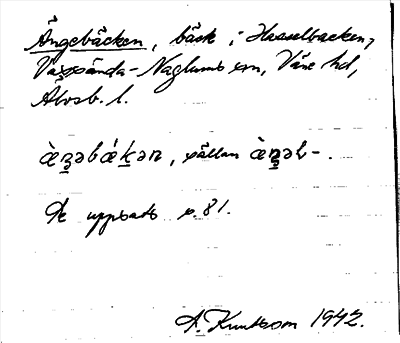 Ängebäcken, bäck i Hasselbacken,
Vässända-Naglums sn, Väne hd,
Älvsb. l.
sällan
Se uppsats s. 81.
A. Knutsson 1942.